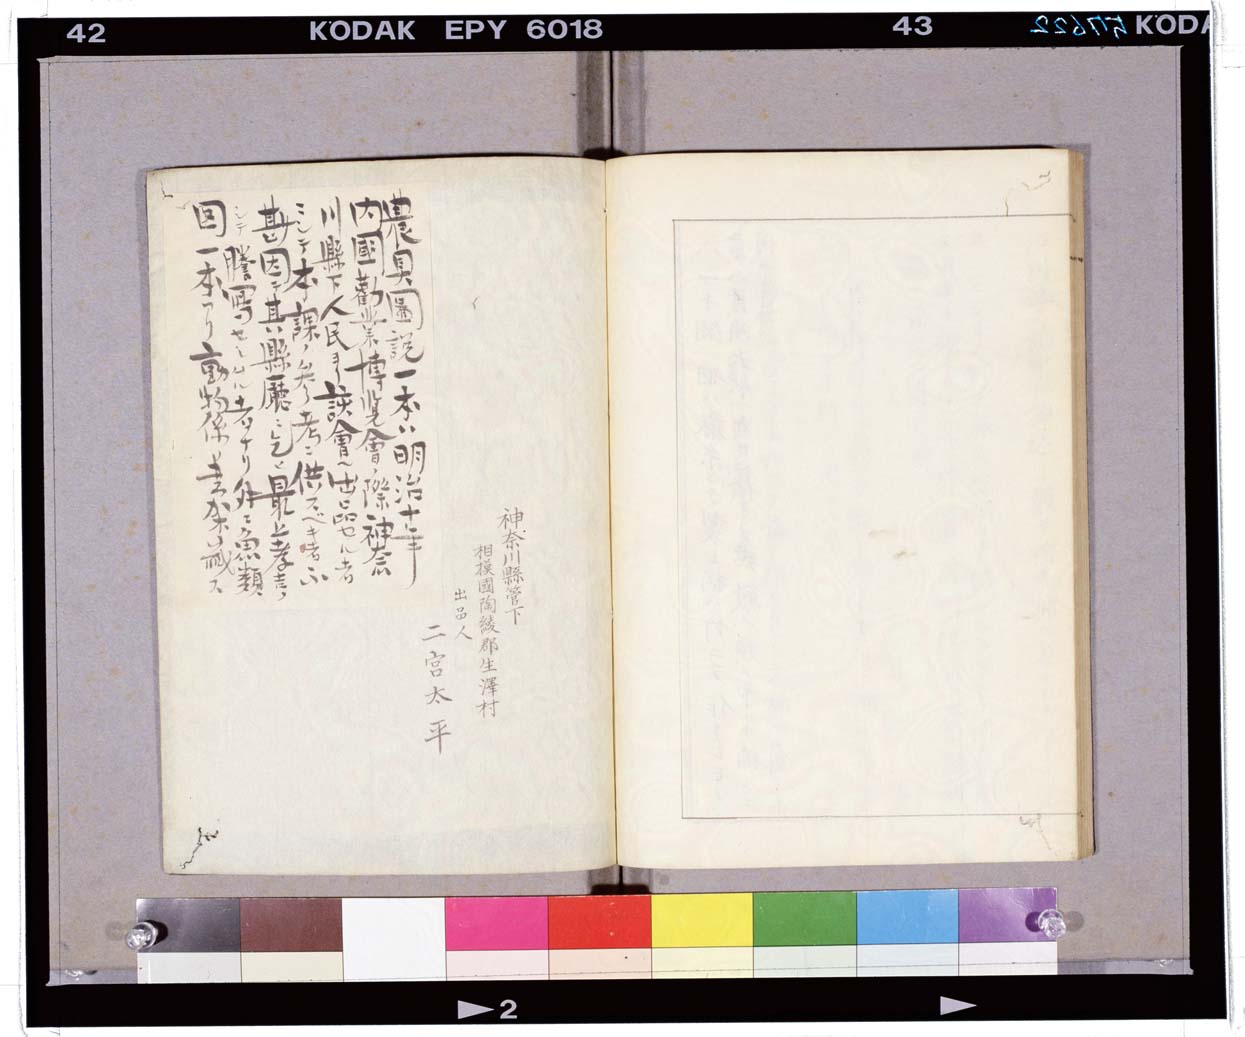 42
KODAK EPY 6018
43
KODA
農具圖説一本ハ明治十年
内國勸業博覽會ノ際神奈
川縣下人民ヨリ該會ヘ出品セル者
ニシテ本課ノ参考ニ供スベキ者ニ
其縣廳ニ乞ヒ最上孝吉
謄寫セ 者ナリ外ニ魚類
図一本アリ動物係
神奈川縣管下
相摸國陶綾郡生澤村
出品人
二宮太平
2